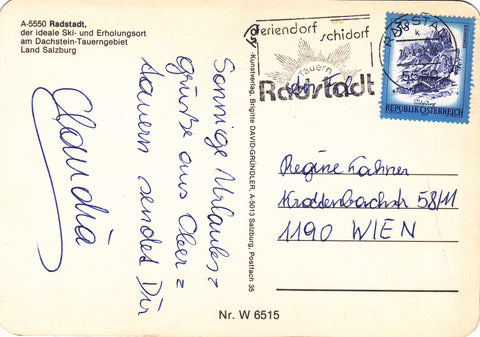 A-5550 Radstadt,
der ideale Ski- und Erholungsort
am Dachstein-Tauerngebiet
Land Salzburg
Sonnige Urlaubs=
grüße aus Ober=
tauern sendet Dir
Claudia
-Kunstverlag, Brigitte DAVID-GRÜNDLER, A-5013 Salzburg, Postfach 35
feriendorf
schidorf
tauern
Radstadt
RADSTADT
5550
REPUBLIK ÖSTERREICH
Regine
Krottenbachstr 58/11
1190 WIEN
Nr. W 6515